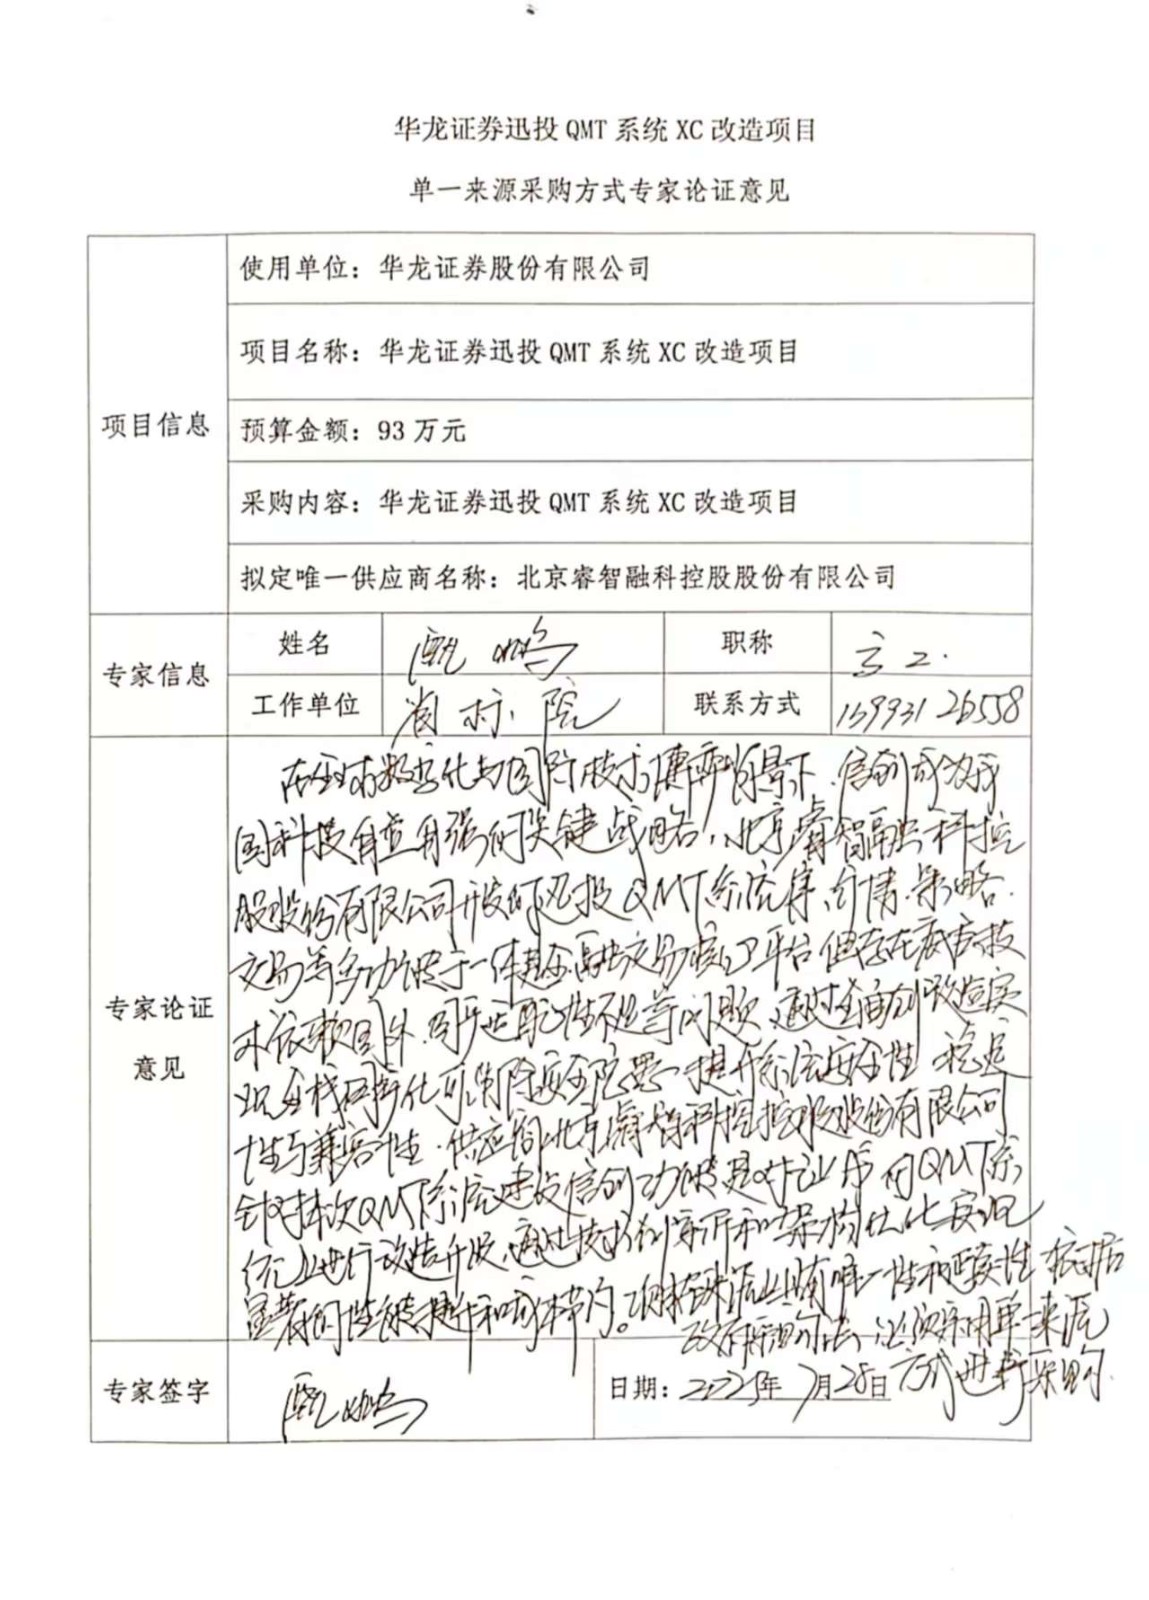 华龙证券迅投 QMT 系统 XC 改造项目
单一来源采购方式专家论证意见
项目信息
使用单位：华龙证券股份有限公司
项目名称：华龙证券迅投 QMT 系统 XC 改造项目
预算金额：93 万元
采购内容：华龙证券迅投 QMT 系统 XC 改造项目
拟定唯一供应商名称：北京睿智融科控股股份有限公司
专家信息
姓名
职称
高工.
工作单位
联系方式
专家论证
意见
在全球数字化与国际技术博弈背景下，信创成为我
国科技自立自强的关键战略，北京睿智融科控
股股份有限公司开发的迅投QMT系统集行情.策略.
交易等多功能于一体 交易核心平台 但存在底层技
术依赖国外.国产适配性不足等问题，通过 信创改造实
现全栈国产化可消除安全隐患，提升系统安全性 稳定
性与兼容性.供应商北京睿智科控股股份有限公司
针对本次QMT系统建设信创功能是对 原有QMT系
统上进行改造开发，通过技术创新和架构优化实现
显著的性能提升和成本节约。 唯一性和延续性 根据
政府采购法，建议采用单一来源
方式进行采购.
专家签字
日期：2025年 7月28日